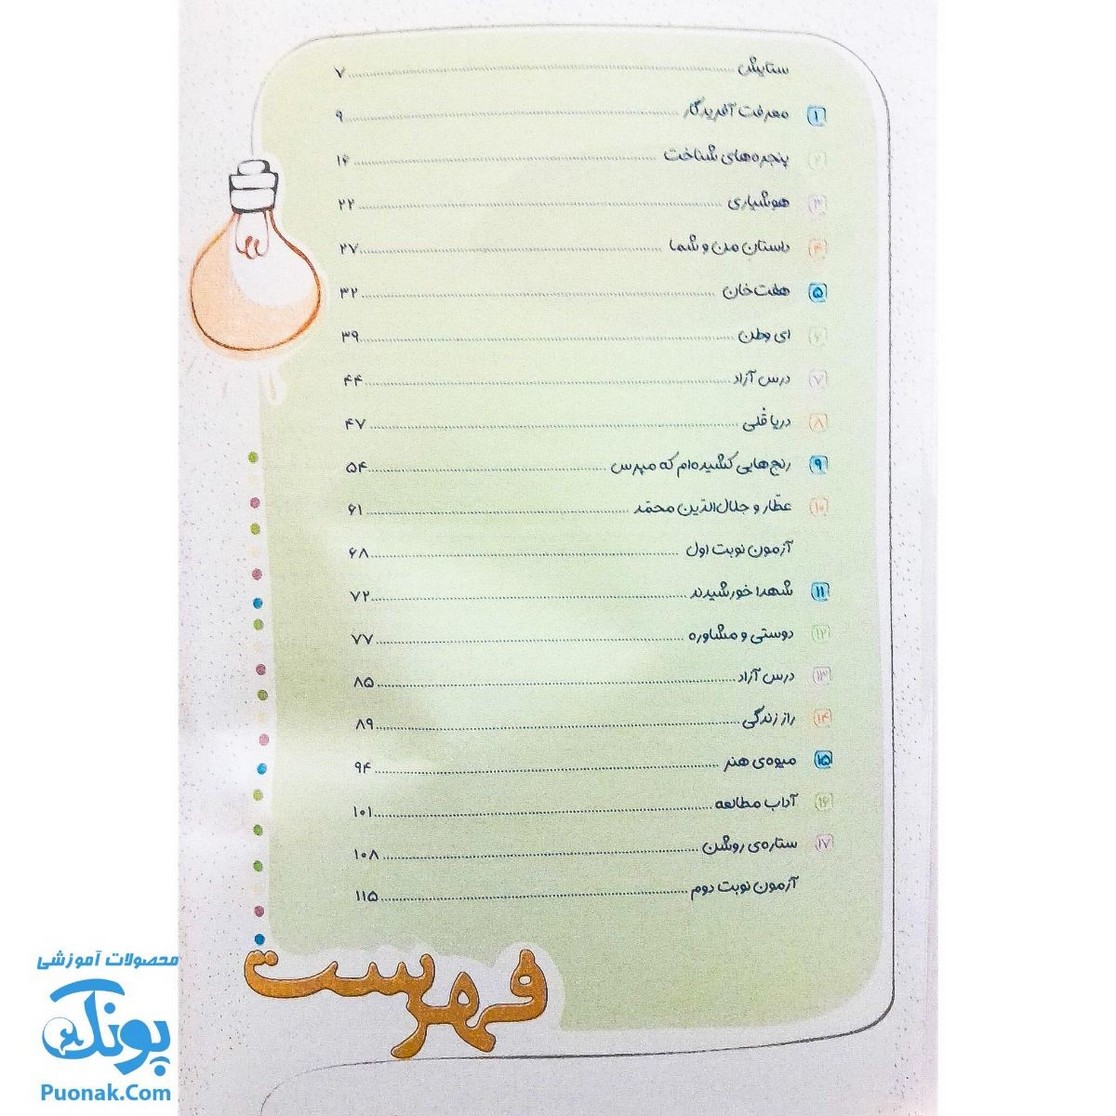 ستایش ........ ۷
۱ معرفت آفریدگار ........ ۹
۲ پنجره‌های شناخت ........ ۱۶
۳ هوشیاری ........ ۲۲
۴ داستان من و شما ........ ۲۷
۵ هفت‌خان ........ ۳۲
۶ ای وطن ........ ۳۹
۷ درس آزاد ........ ۴۴
۸ دریاقُلی ........ ۴۷
۹ رنج‌هایی کشیده‌ام که مپرس ........ ۵۴
۱۰ عطّار و جلال‌الدّین محمّد ........ ۶۱
آزمون نوبت اول ........ ۶۸
۱۱ شهدا خورشیدند ........ ۷۲
۱۲ دوستی و مشاوره ........ ۷۷
۱۳ درس آزاد ........ ۸۵
۱۴ راز زندگی ........ ۸۹
۱۵ میوه‌ی هنر ........ ۹۴
۱۶ آداب مطالعه ........ ۱۰۱
۱۷ ستاره‌ی روشن ........ ۱۰۸
آزمون نوبت دوم ........ ۱۱۵
فهرست
محصولات آموزشی
پونک
Puonak.Com